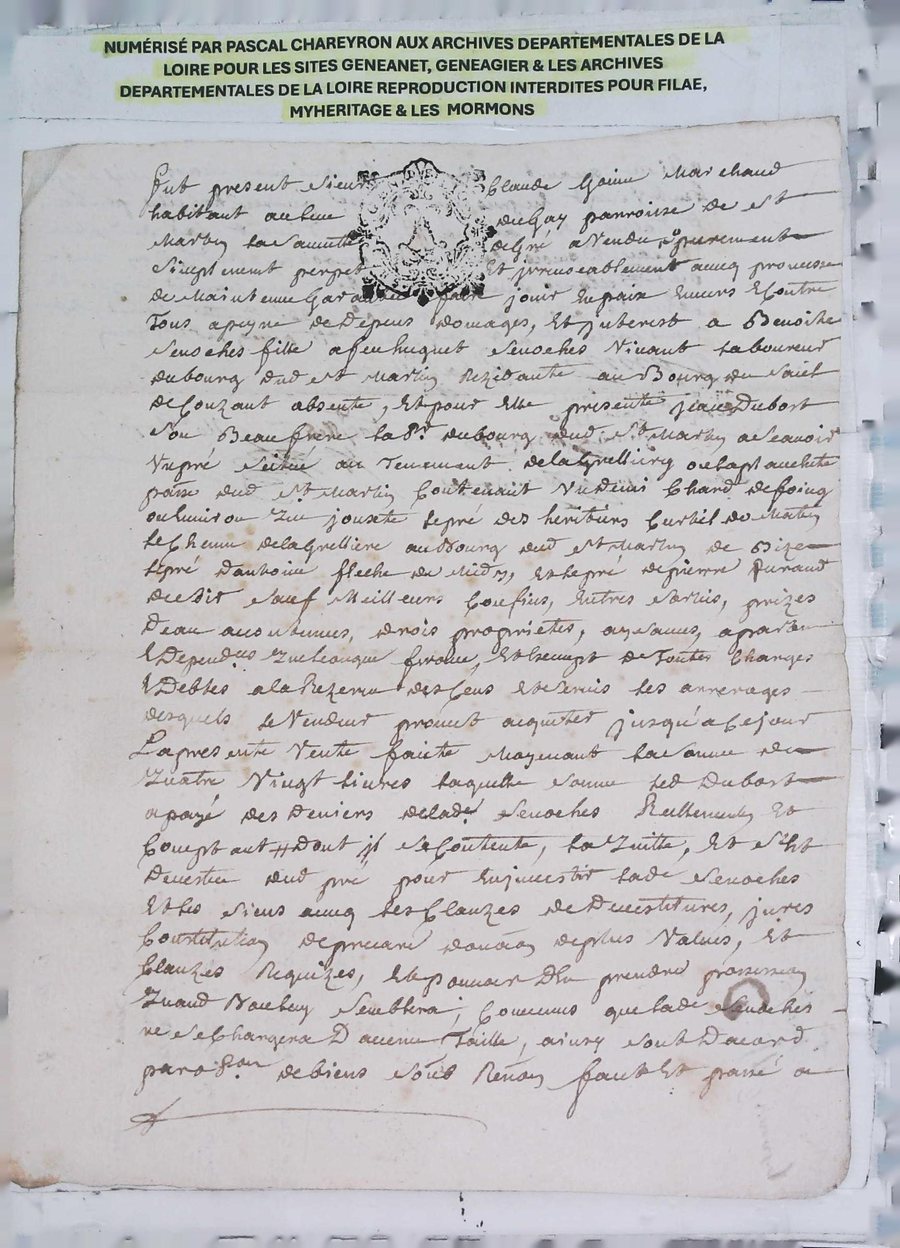 NUMÉRISÉ PAR PASCAL CHAREYRON AUX ARCHIVES DEPARTEMENTALES DE LA
LOIRE POUR LES SITES GENEANET, GENEAGIER & LES ARCHIVES
DEPARTEMENTALES DE LA LOIRE REPRODUCTION INTERDITES POUR FILAE,
MYHERITAGE & LES MORMONS
Fut present Sieur Claude Marchand
habitant au lieu du Gay parroisse de St
Martin la Sauveté de gré a Vendu purement
Simplement perpet Et jrreuocablement auecq promesse
de Maintenue jouir En paix Enuers & Contre
Tous apeyne de Depens domages, Et jnterest a Benoiste
fille a feu huguet Viuant laboureur
du bourg dud St Martin Rezidante au Bourg du Sail
de Couzant absente, Et pour Elle presente Jean Dubost
Son Beaufrere du bourg dud St Martin a Scauoir
Vn pré Scitué au Tenement
parsse dud St Martin Contenant Vn Demi Chard de foing
ou Enuiron Que jouxte le pré des heritiers de Matin
le Chemin de la Grelliere au Bourg dud St Martin de Bize
le pré d'antoine fleche de Midy, Et le pré de pierre Durand
Sauf Meilleurs Confins, Entrées Sorties, prizes
Deau acoutumées, drois proprietés, aysances, aparten
& Dependces Quelconque franc, Et Exempt de Toutes Charges
& Debtes a la Rezerue des Cens Et Seruis les arrerages
desquels le Vendeur promet acquiter jusqu'a Ce jour
La presente Vente faite Moyenant la Somme de
Quatre Vingt liures laquelle Somme led Dubost
a payé des Deniers de lade Reellement Et
Comptant Dont jl Se Contente, la Quitte, Et S'est
Deuestu dud pré pour En jnuestir lade
Et les Siens auecq les Clauzes de Deuestitures,
Constitution de precaire donaon de plus Values, Et
Clauzes Requizes, Et pouuoir D'En prendre possession
Quand Semblera; Conuenus que lade
ne Se Chargera Daucune Taille, ainsy Sont Dacord
par obligaon de biens Sous Renon fait Et passé a